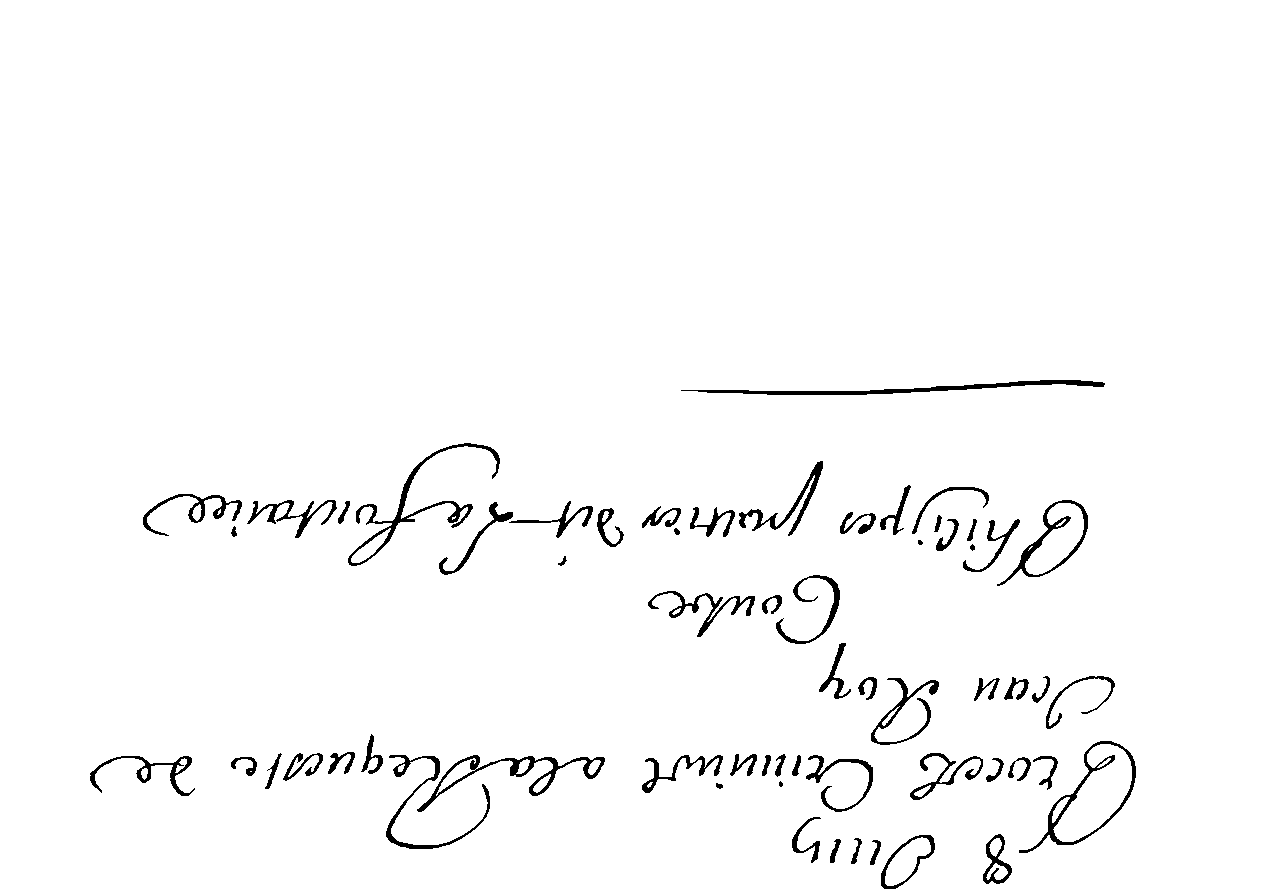 8 Juin
Procez Criminel a la Requeste de
Jean Roy
Contre
Philippes poitier dit Lafontaine